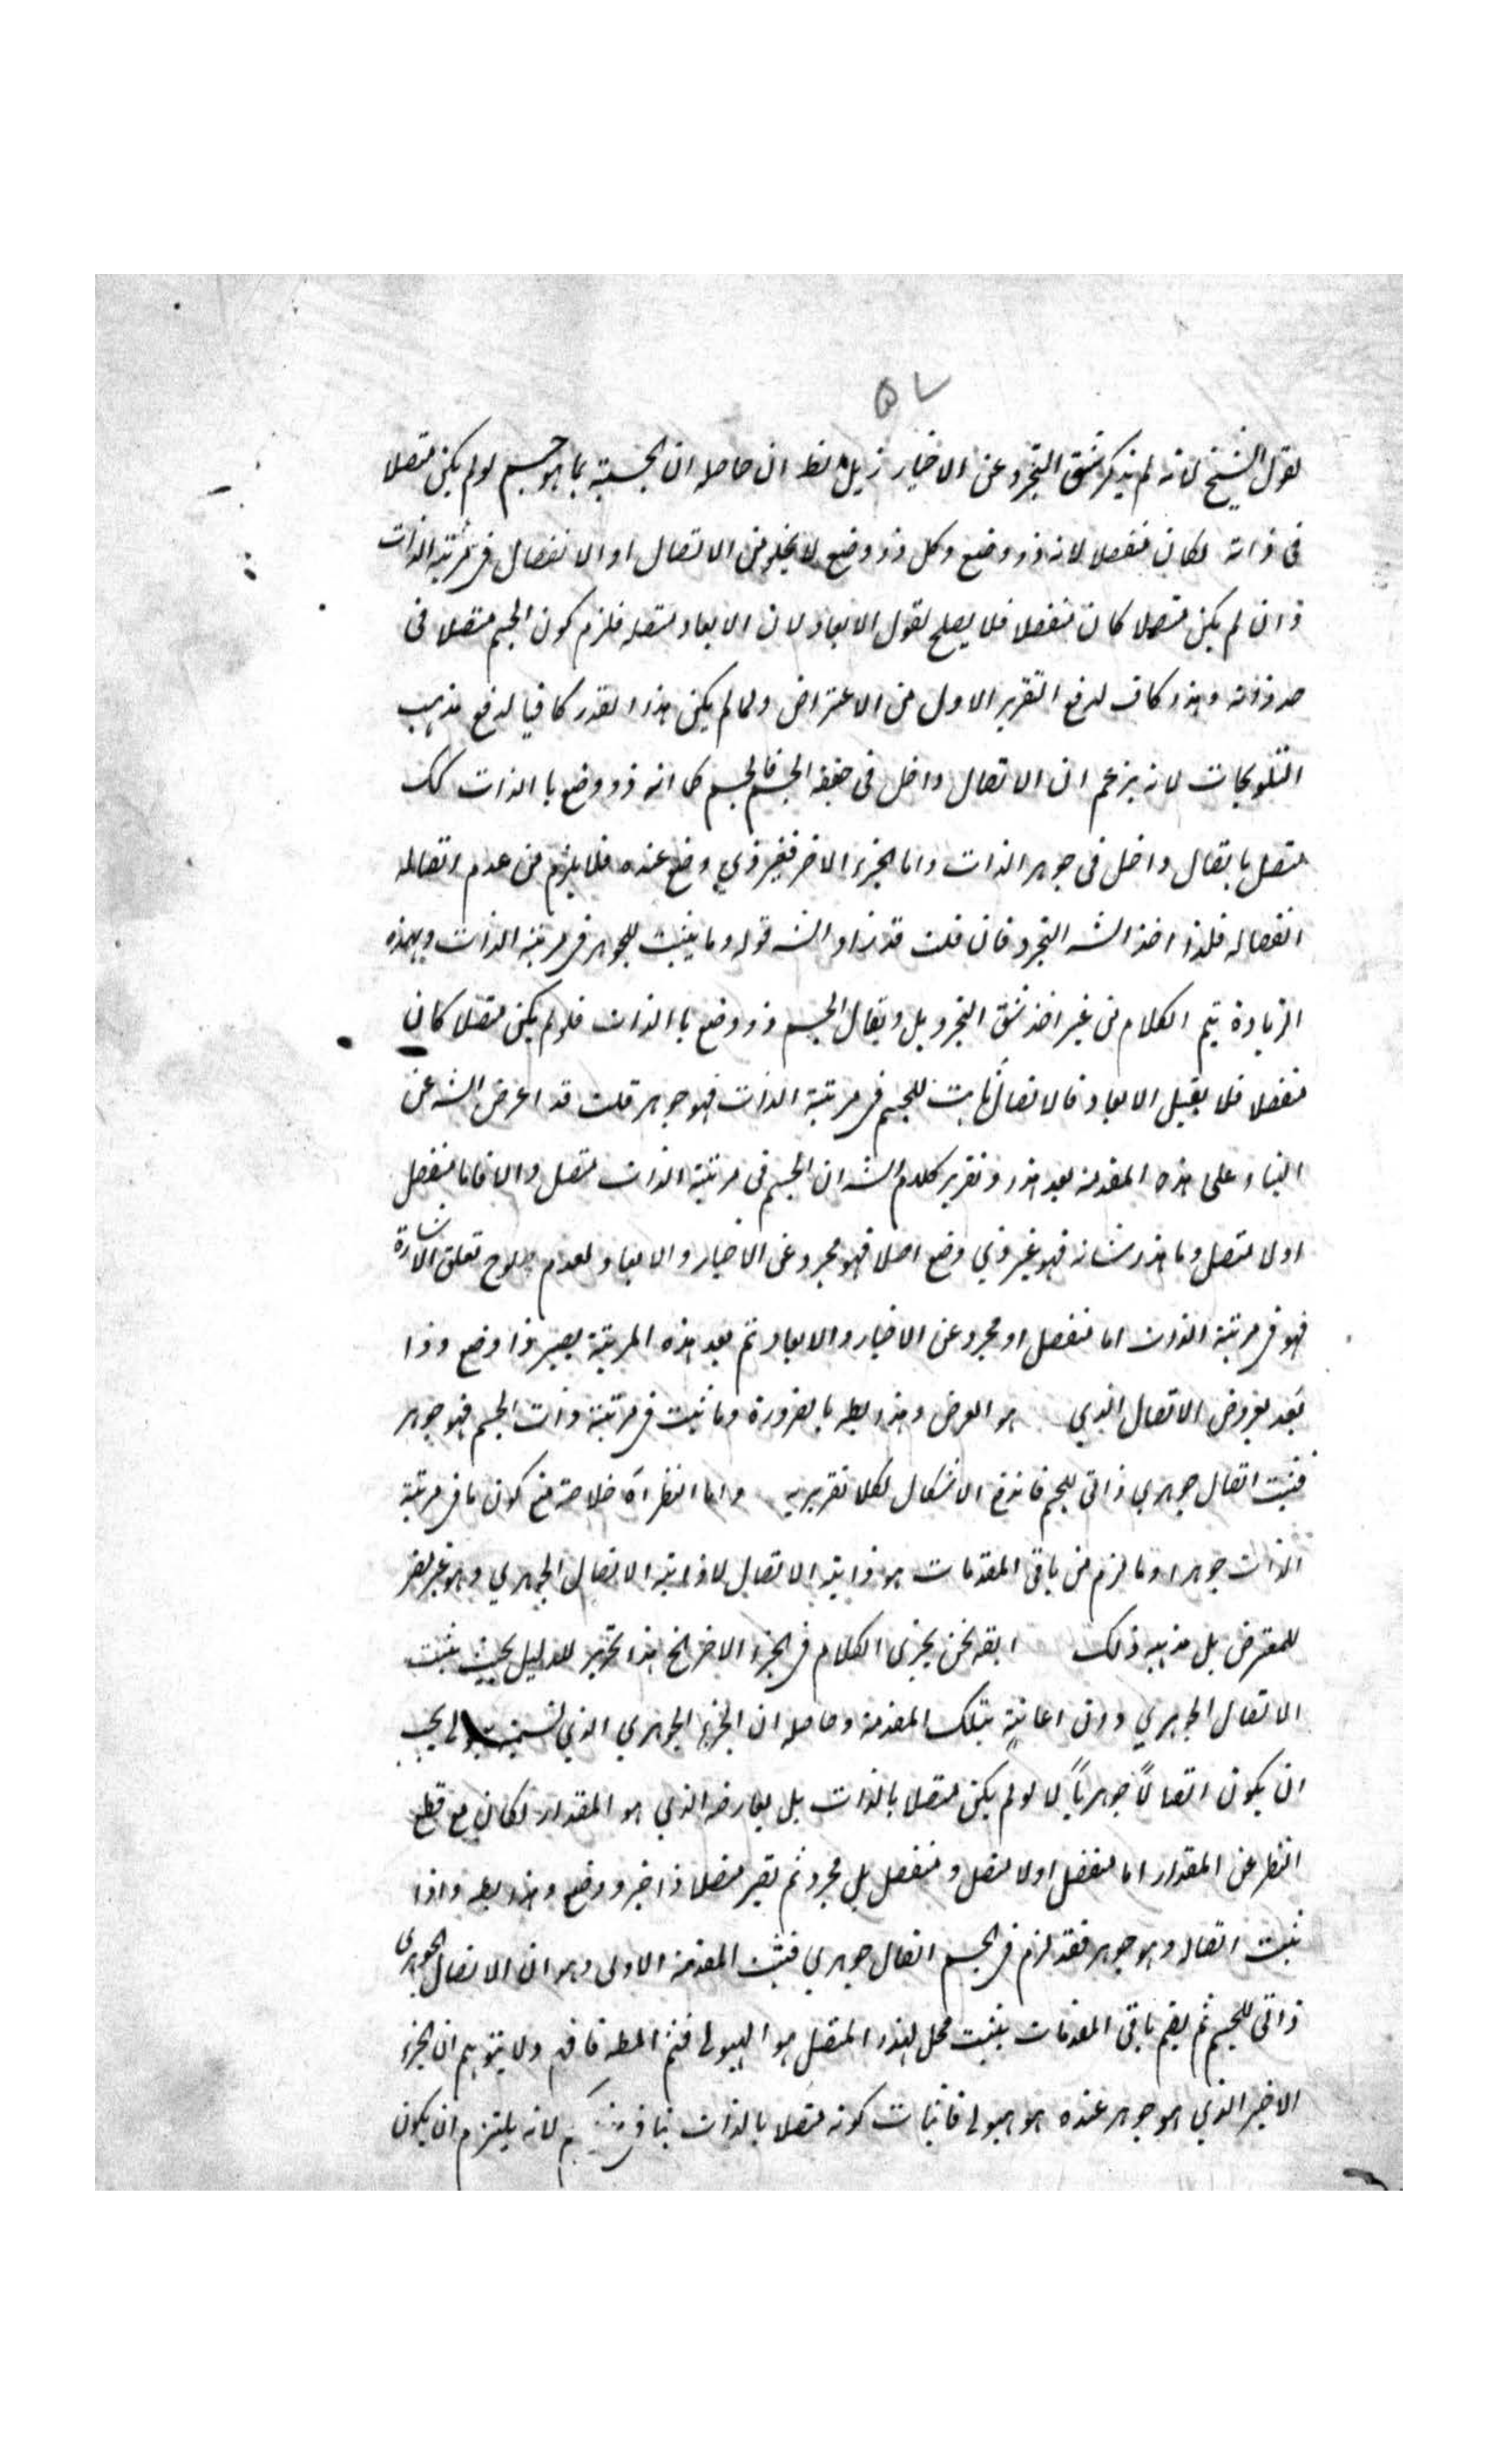 ٥٧
لقول الشيخ لانه لم يذكر شق التجرد عن الاحياز ان حاصله ان الجسمية بما هو جسم لو لم يكن متصلا
فى ذاته لكان منفصلا لانه ذو وضع وكل ذو وضع لا يخلو من الاتصال او الانفصال فى مرتبة الذات
فان لم يكن متصلا كان منفصلا فلا يصلح لقبول الابعاد لان الابعاد متصلة فلزم كون الجسم متصلا فى
حد ذاته وهذا كاف لدفع التقرير الاول من الاعتراض ولما لم يكن هذا القدر كافيا لدفع مذهب
التلويحات لانه يزعم ان الاتصال داخل فى حقيقة الجسم فالجسم كما انه ذو وضع با الذات كك
متصل باتصال داخل فى جوهر الذات واما الجزء الاخر فغير ذي وضع عنده فلا يلزم من عدم اتصاله
انفصاله فلذا اخذ الشه التجرد فان قلت قد زاد الشه قوله وما يثبت للجوهر فى مرتبة الذات وبهذه
الزيادة يتم الكلام من غير اخذ شق التجرد بل ويقال الجسم ذو وضع با الذات فلو لم يكن متصلا كان
منفصلا فلا يقبل الابعاد فالاتصال ثابت للجسم فى مرتبة الذات فهو جوهر قلت قد اعرض الشه عن
البناء على هذه المقدمة بعد هذا وتقرير كلام الشه ان الجسم فى مرتبة الذات متصل والا فاما منفصل
اولا متصل وما هذا شانه فهو غير ذي وضع اصلا فهو مجرد عن الاحياز والابعاد لعدم صلوح تعلق الاشارة
فهو فى مرتبة الذات اما منفصل او مجرد عن الاحياز والابعاد ثم بعد هذه المرتبة يصير ذا وضع وذا
بعد بعروض الاتصال الذي هو العرض وهذا بطه بالضرورة وما ثبت فى مرتبة ذات الجسم فهو جوهر
فثبت اتصال جوهري ذاتى للجسم فاندفع الاشكال بكلا تقريريه واما النظر اه خلاصته منع كون ما فى مرتبة
الذات جوهرا وما لزم من باقى المقدمات هو ذاتية الاتصال لا ذاتية الاتصال الجوهري وهو غير مضر
للمعترض بل مذهبه ذلك نحن نجرى الكلام فى الجزء الاخر الخ هذا تحرير للدليل بحيث يثبت
الاتصال الجوهري دون اعانة بتلك المقدمة وحاصله ان الجزء الجوهري الذي نسميه هيولى يجب
ان يكون اتصالاً جوهرياً لو لم يكن متصلا بالذات بل بعارضه الذي هو المقدار لكان مع قطع
النظر عن المقدار اما منفصل اولا متصل و منفصل بل مجرد ثم تصير متصلا ذا حيز ووضع وهذا بطه واذا
ثبت اتصاله وهو جوهر فقد لزم فى الجسم اتصال جوهري فثبت المقدمة الاولى وهو ان الاتصال الجوهرى
ذاتى للجسم ثم بضم باقى المقدمات يثبت محل لهذا المتصل هو الهيولى فتم المطه فافهم ولا يتوهم ان الجزء
الاخير الذي هو جوهر عنده هو هيولى فاثبات كونه متصلا بالذات ينافى لانه يلتزم ان يكون